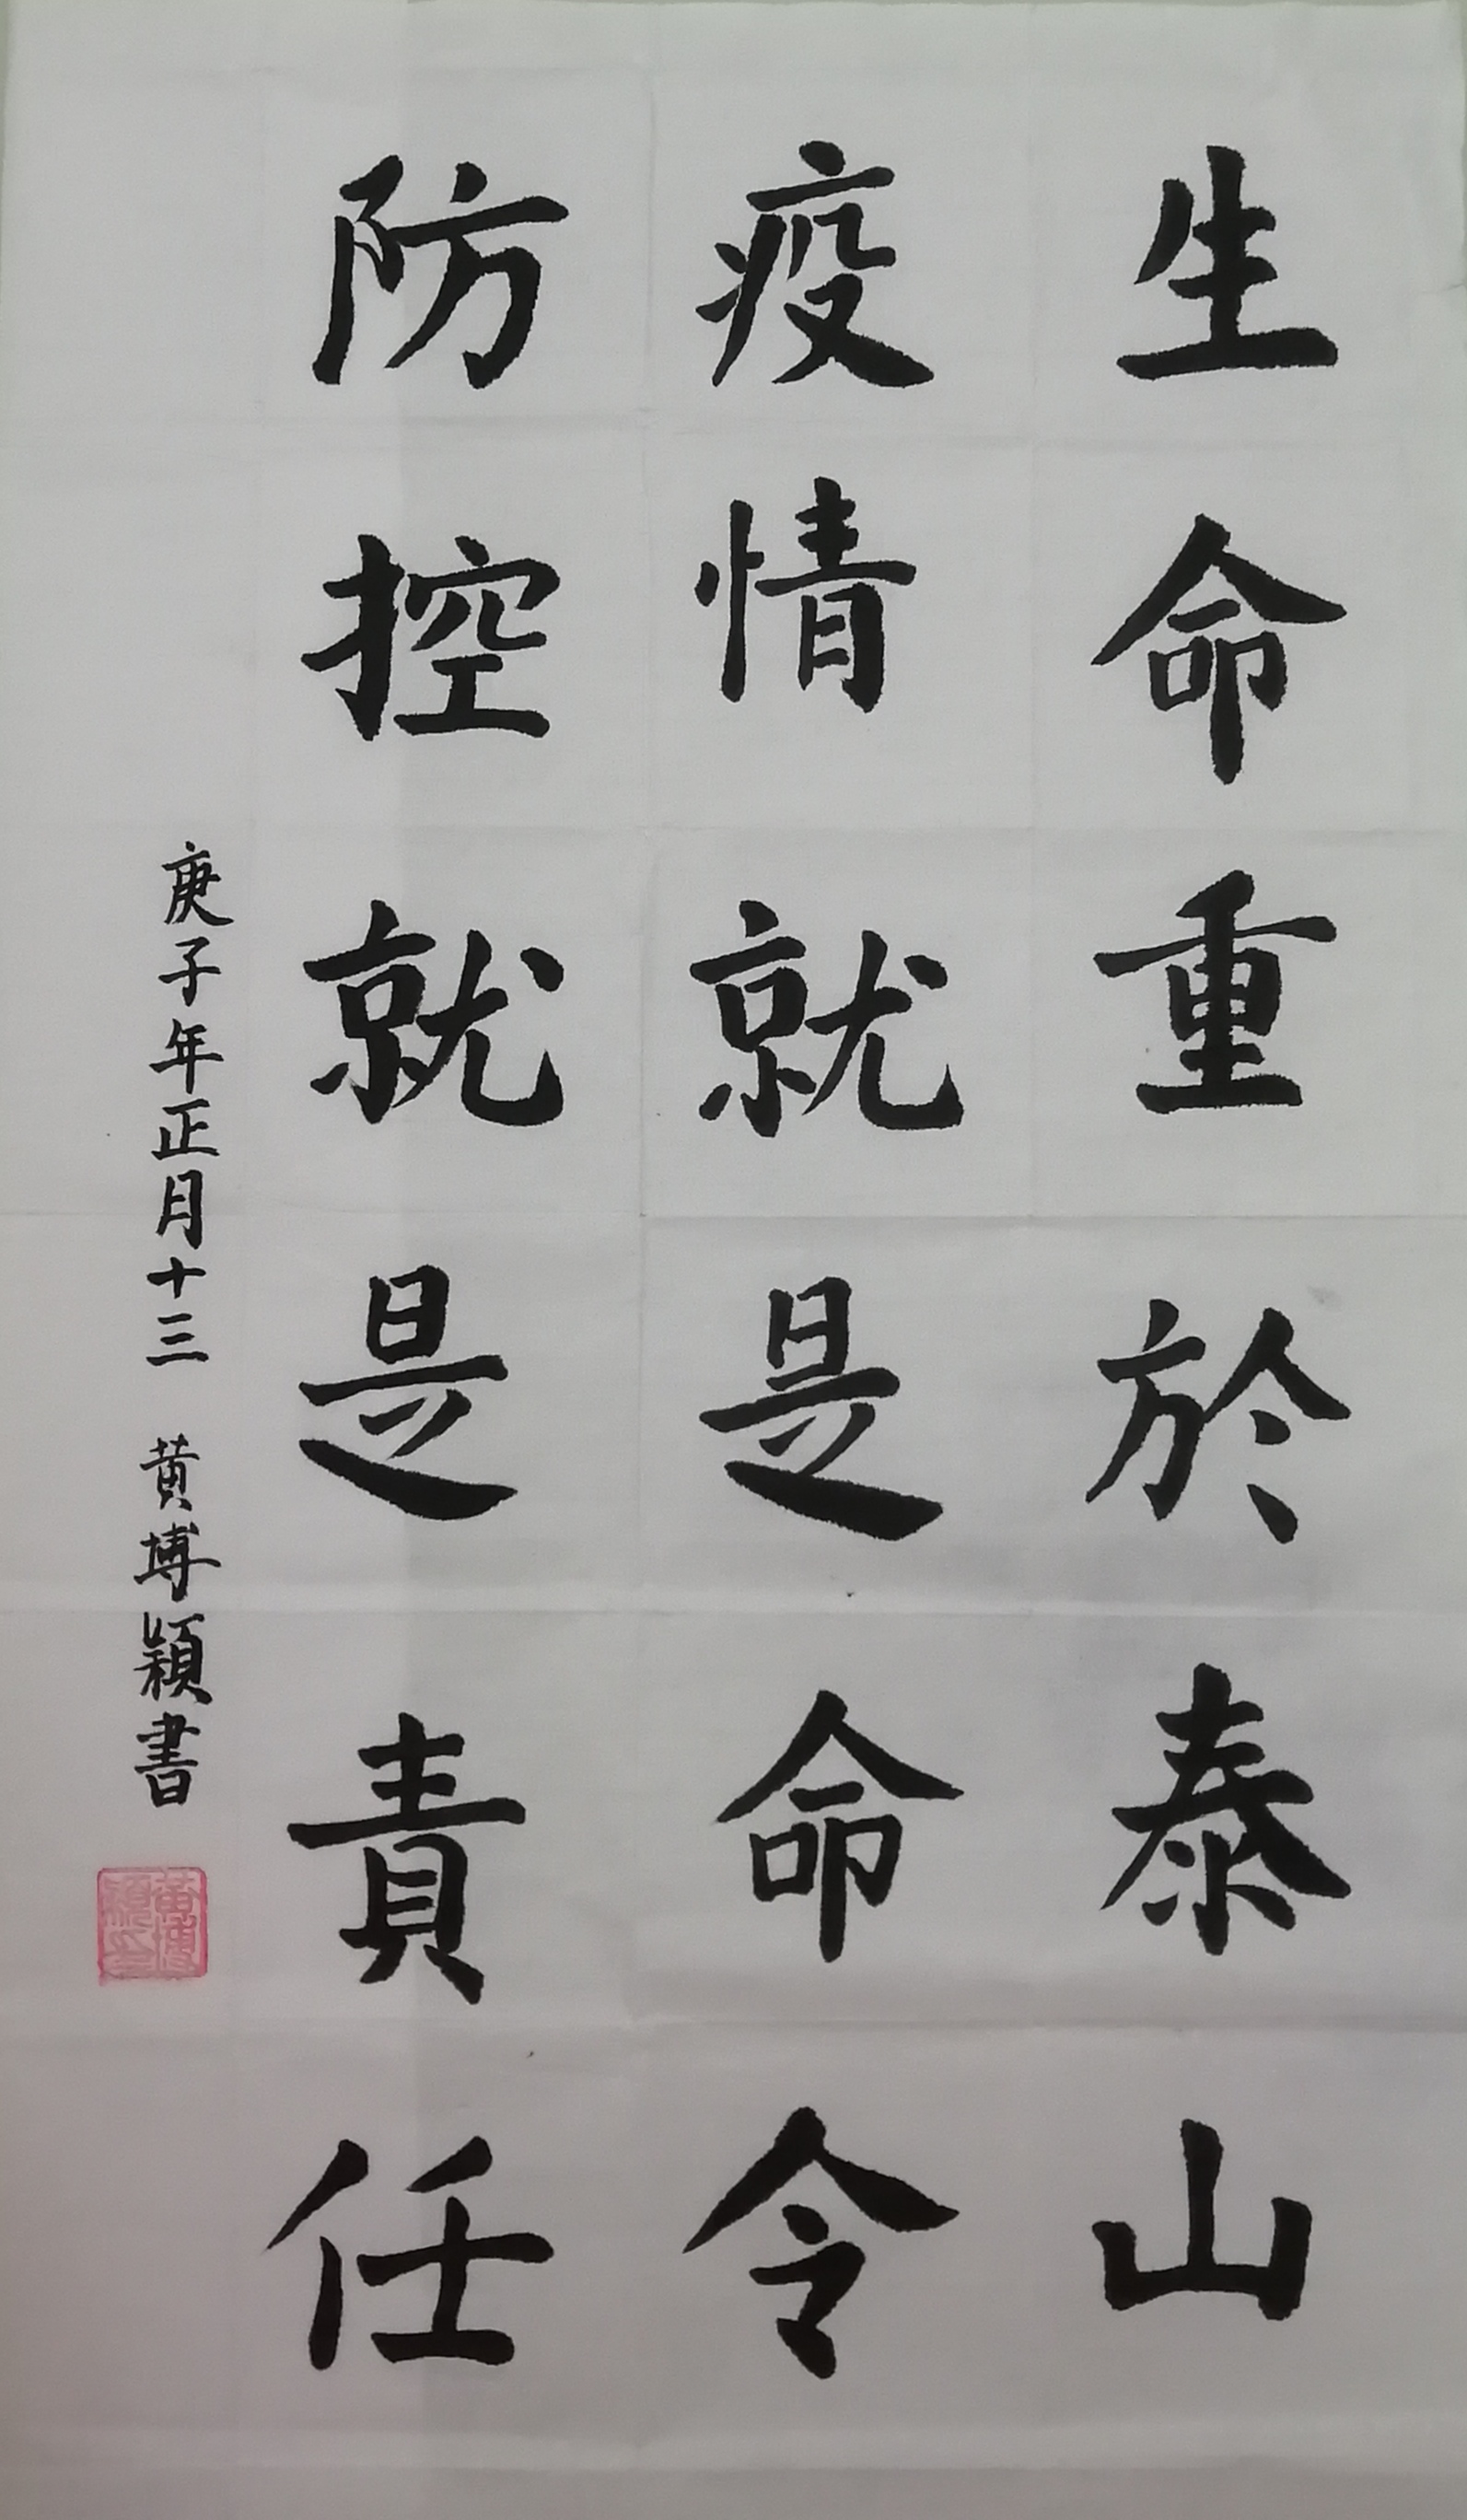 生命重於泰山
疫情就是命令
防控就是責任
庚子年正月十三 黄博穎書